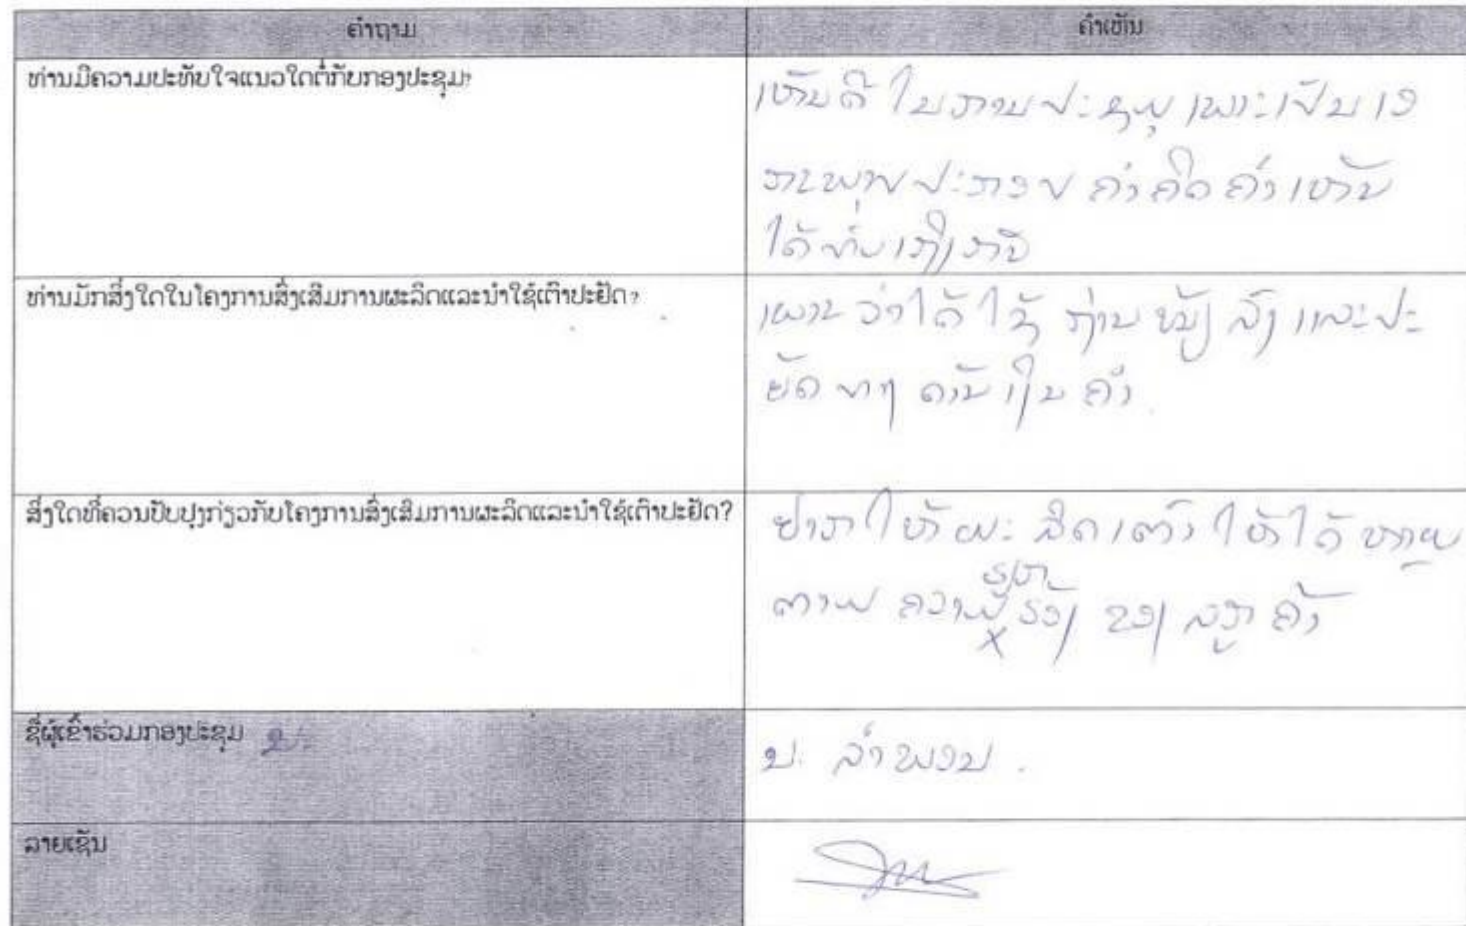 ຄໍາຖາມ
ຄໍາເຫັນ
ທ່ານມີຄວາມປະທັບໃຈແນວໃດຕໍ່ກັບກອງປະຊຸມ?
ເຫັນດີ ໃນການປະຊຸມ ເພາະເປັນ
ປະກອບ ຄໍາຄິດ ຄໍາເຫັນ
ໄດ້
ທ່ານມັກສິ່ງໃດໃນໂຄງການສົ່ງເສີມການຜະລິດແລະນໍາໃຊ້ເຕົາປະຢັດ?
ວ່າໄດ້ ໃຊ້ ຖ່ານ ໜ້ອຍ ລົງ ແລະປະ
ຢັດ ທາງ ດ້ານ ເງິນ ຄໍາ.
ສິ່ງໃດທີ່ຄວນປັບປຸງກ່ຽວກັບໂຄງການສົ່ງເສີມການຜະລິດແລະນໍາໃຊ້ເຕົາປະຢັດ?
ຢາກ ໃຫ້ ຜະລິດ ເຕົາ ໃຫ້ ໄດ້ ຫຼາຍ
ຕາມ ຄວາມ ຮຽກ ຮ້ອງ ຂອງ ລູກ ຄ້າ
ຊື່ຜູ້ເຂົ້າຮ່ວມກອງປະຊຸມ
ນ. ລໍາພອນ.
ລາຍເຊັນ